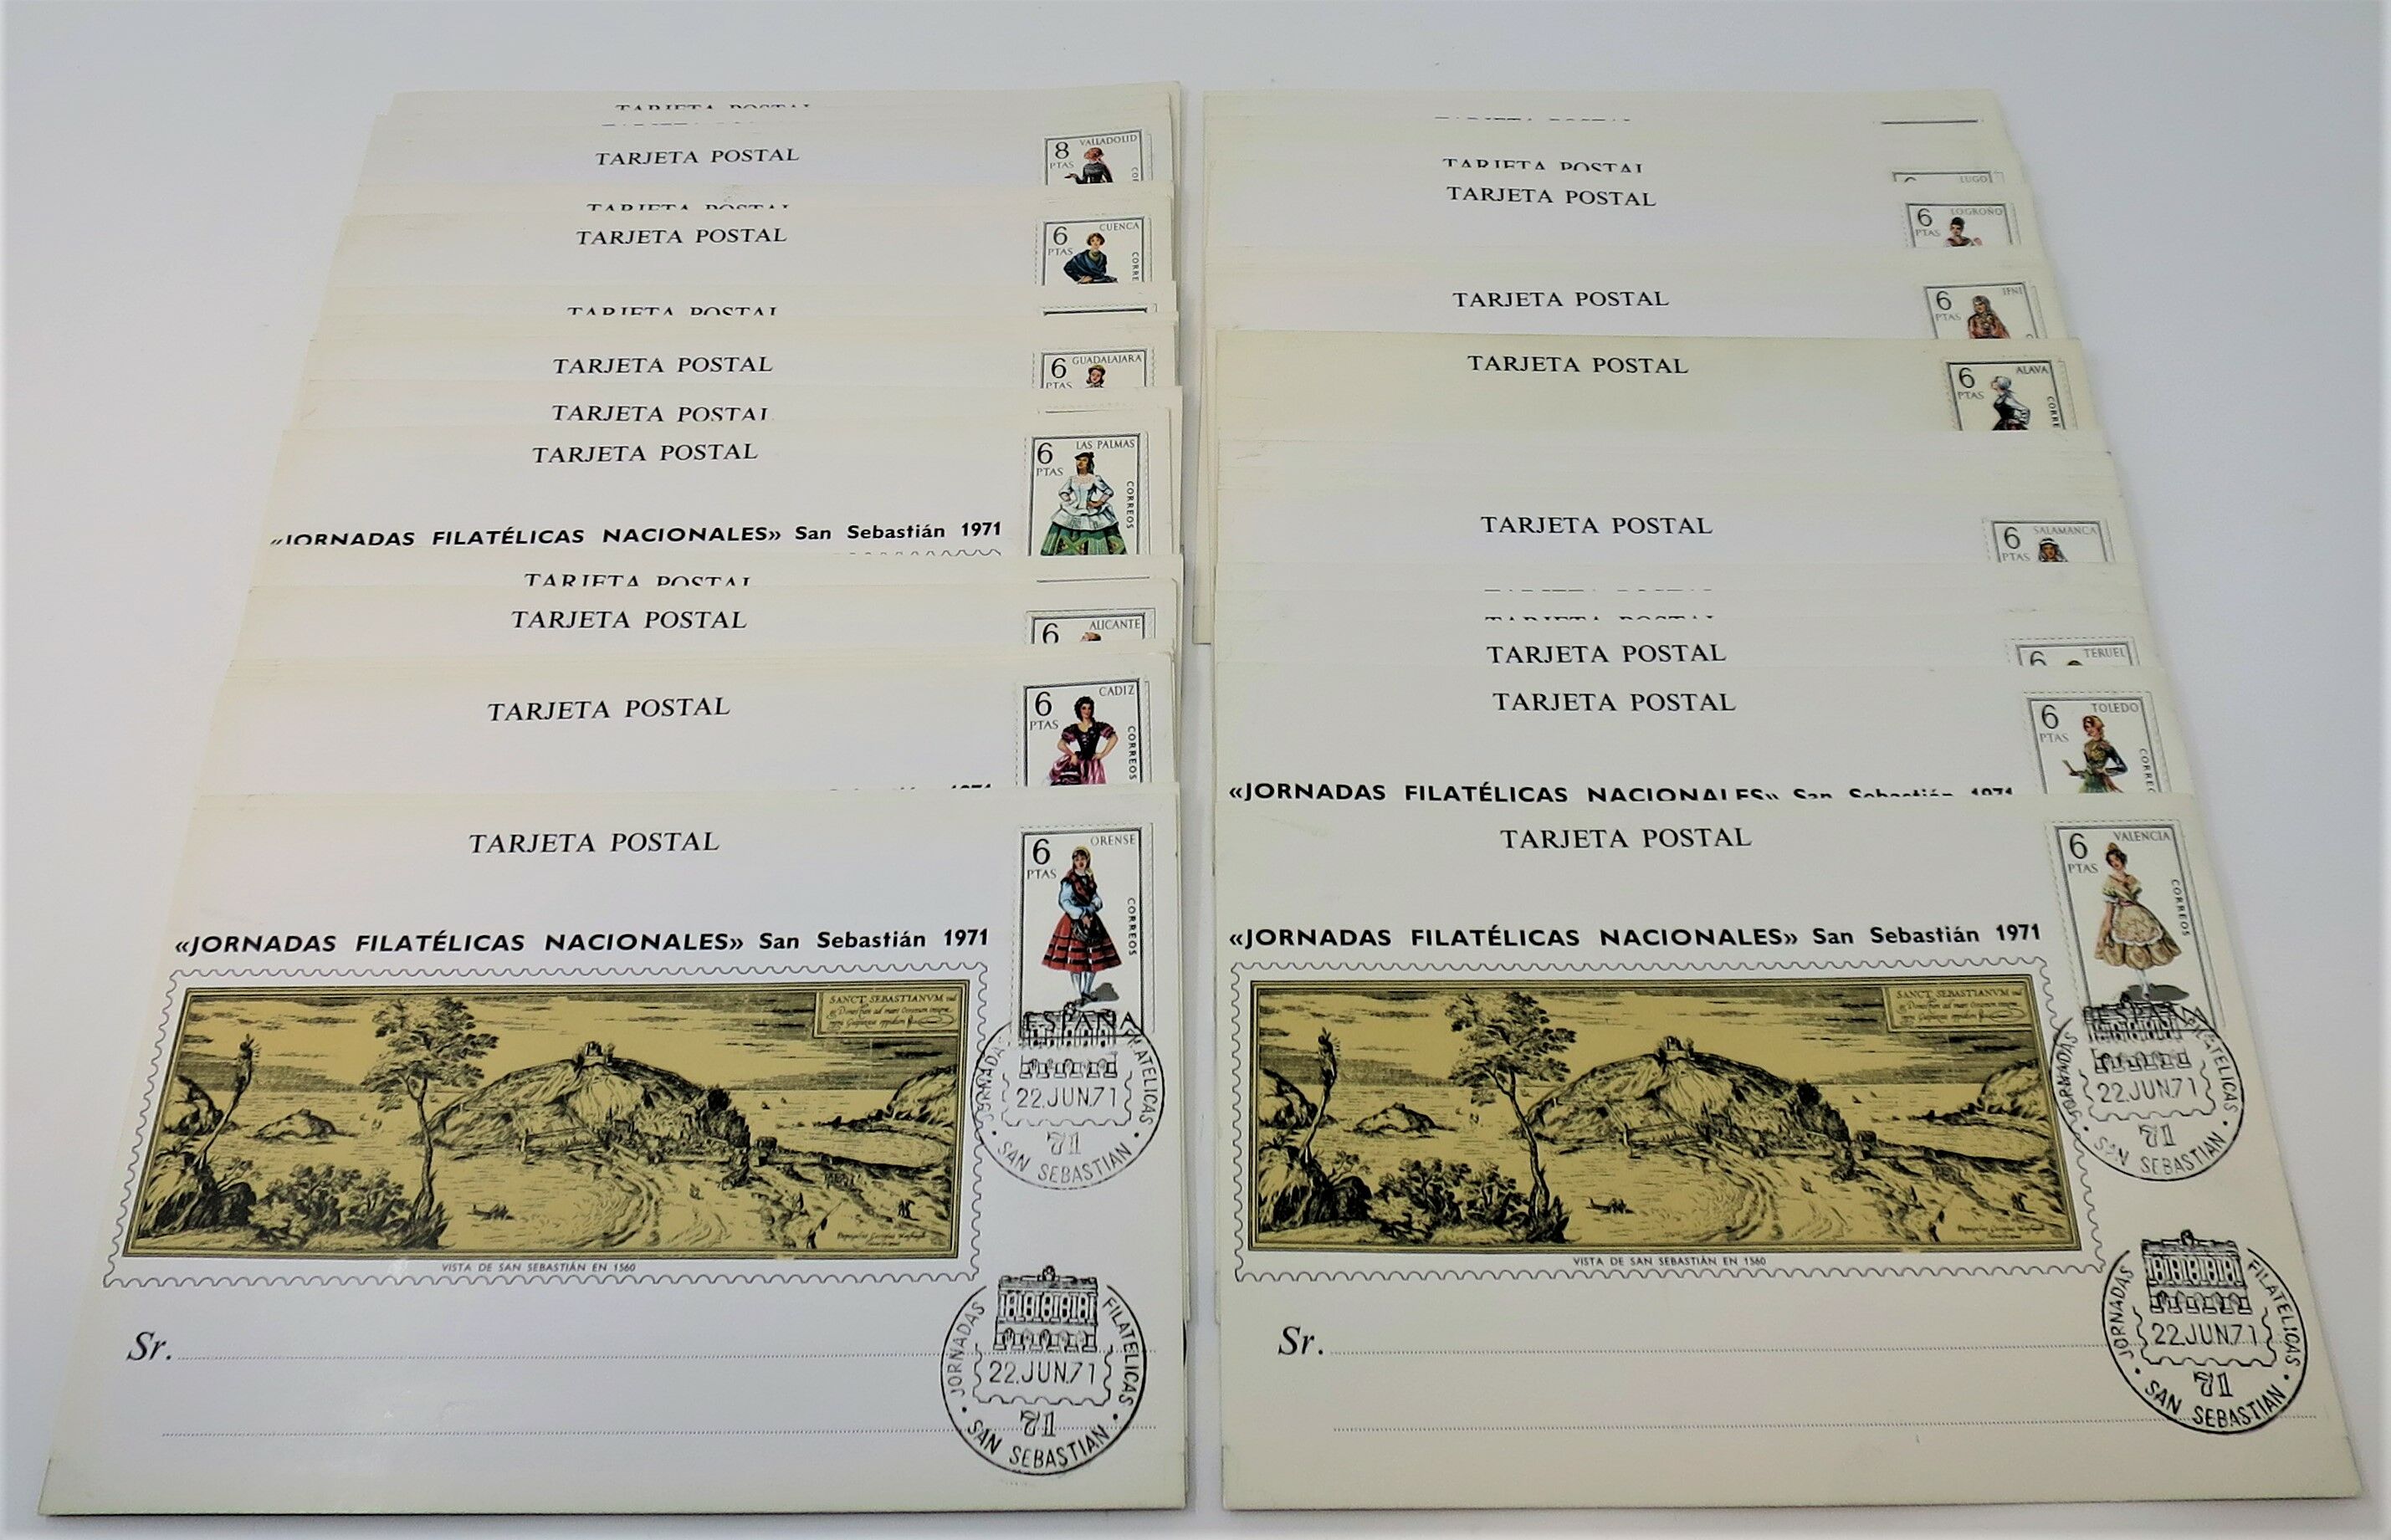 TARJETA POSTAL
TARJETA POSTAL
8 VALLADOLID
PTAS
TARJETA POSTAL
TARJETA POSTAL
6 CUENCA
PTAS
CORRE
TARJETA POSTAL
TARJETA POSTAL
6 GUADALAJARA
PTAS
TARJETA POSTAL
TARJETA POSTAL
6 LAS PALMAS
PTAS
CORREOS
«JORNADAS FILATÉLICAS NACIONALES» San Sebastián 1971
TARJETA POSTAL
TARJETA POSTAL
6 ALICANTE
TARJETA POSTAL
6 CADIZ
PTAS
CORREOS
TARJETA POSTAL
6 ORENSE
PTAS
CORREOS
ESPAÑA
«JORNADAS FILATÉLICAS NACIONALES» San Sebastián 1971
SANCT SEBASTIANVM
VISTA DE SAN SEBASTIÁN EN 1560
JORNADAS FILATELICAS
22.JUN.71
71
SAN SEBASTIAN
Sr.
JORNADAS FILATELICAS
22.JUN.71
71
SAN SEBASTIAN
TARJETA POSTAL
LUGO
TARJETA POSTAL
6 LOGROÑO
PTAS
TARJETA POSTAL
6 IFNI
PTAS
TARJETA POSTAL
6 ALAVA
PTAS
CORRE
TARJETA POSTAL
6 SALAMANCA
PTAS
TARJETA POSTAL
6 TERUEL
TARJETA POSTAL
6 TOLEDO
PTAS
CORREO
«JORNADAS FILATÉLICAS NACIONALES» San Sebastián 1971
TARJETA POSTAL
6 VALENCIA
PTAS
CORREOS
ESPAÑA
«JORNADAS FILATÉLICAS NACIONALES» San Sebastián 1971
SANCT SEBASTIANVM
VISTA DE SAN SEBASTIÁN EN 1560
JORNADAS FILATELICAS
22.JUN.71
71
SAN SEBASTIAN
Sr.
JORNADAS FILATELICAS
22.JUN.71
71
SAN SEBASTIAN